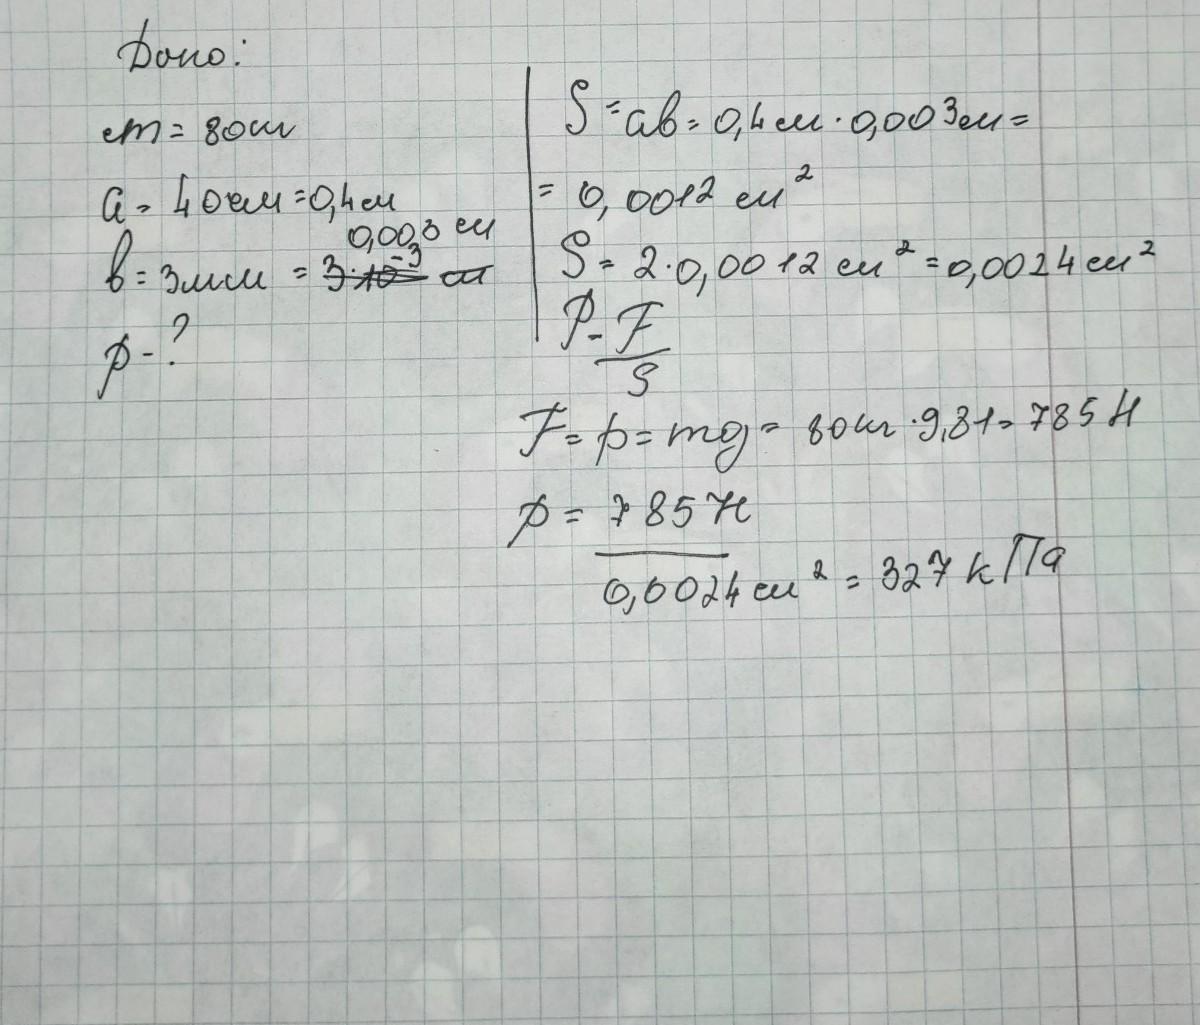 Дано:
m = 80 кг
a = 40 см = 0,4 м
0,003 м
b = 3 мм = 3·10⁻³ м
p - ?
S = ab = 0,4 м · 0,003 м =
= 0,0012 м²
S = 2·0,0012 м² = 0,0024 м²
P = F
S
F = p = mg = 80 кг · 9,81 = 785 Н
p = 785 Н
0,0024 м² = 327 кПа